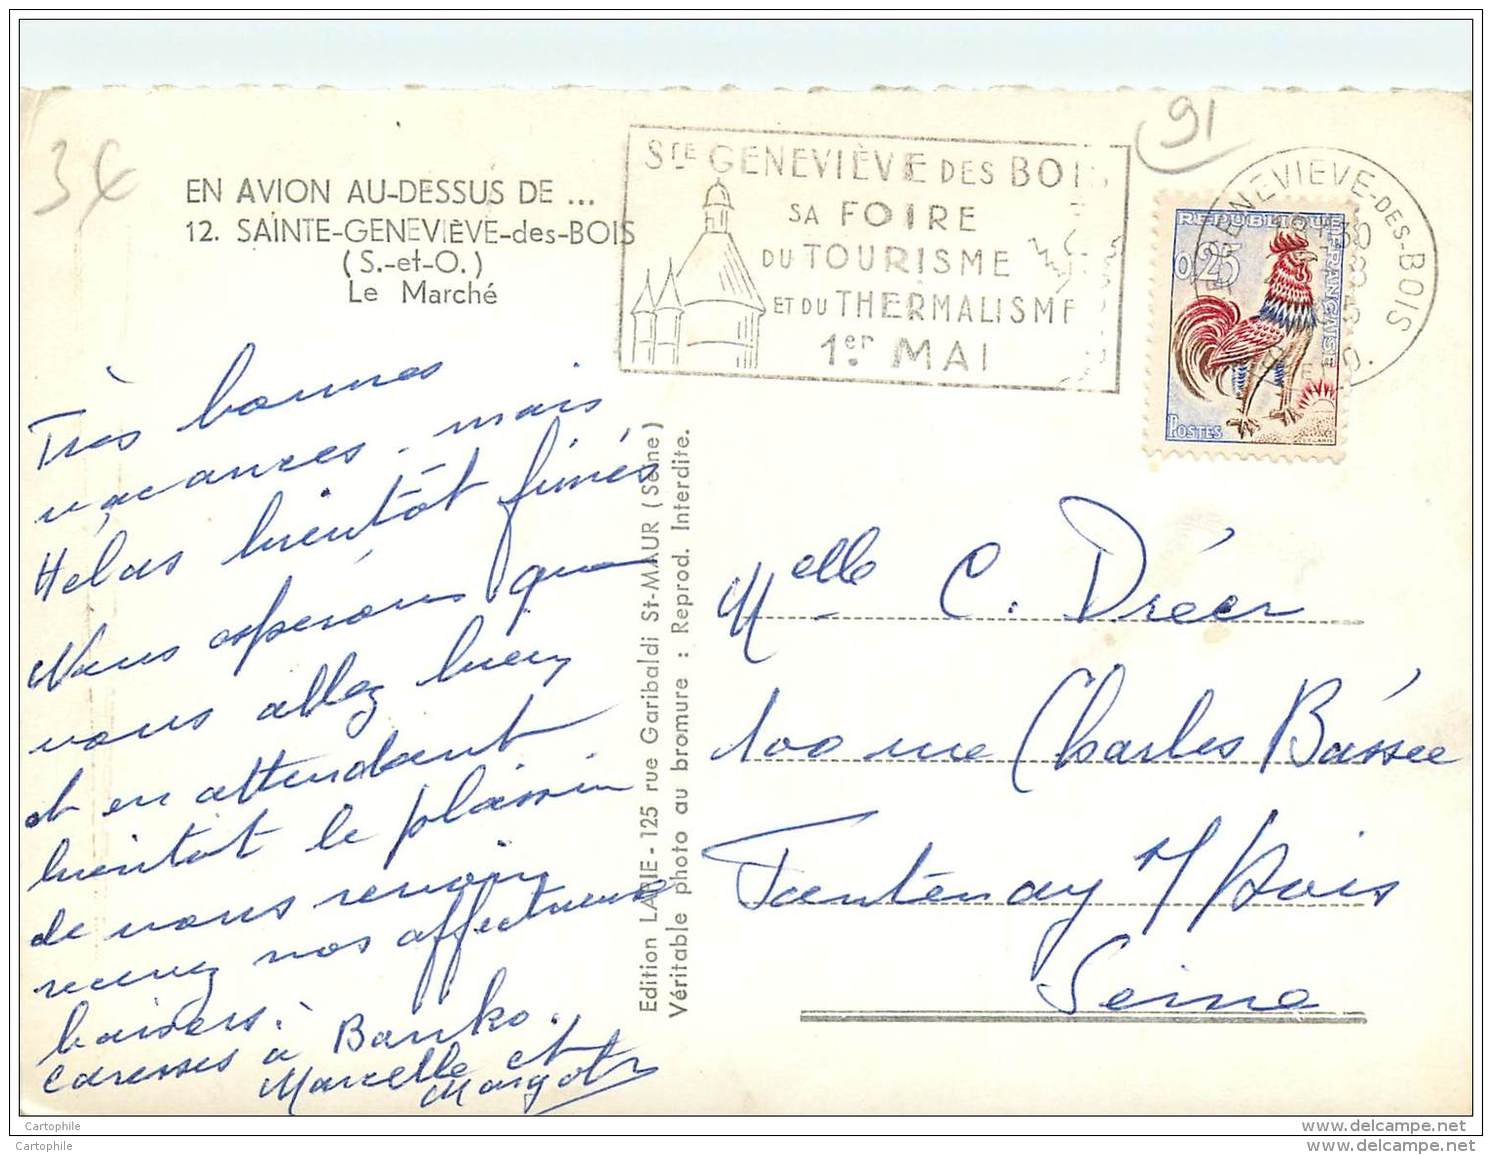 3€
EN AVION AU-DESSUS DE ...
12. SAINTE-GENEVIÈVE-des-BOIS
(S.-et-O.)
Le Marché
STE GENEVIÈVE DES BOIS
SA FOIRE
DU TOURISME
ET DU THERMALISME
1er MAI
91
GENEVIEVE-DES-BOIS
REPUBLIQUE FRANÇAISE
0,25
POSTES
Très bonnes
vacances. mais
Hélas bientôt finies
Nous espérons que
vous allez bien
et en attendant
bientot le plaisir
de vous revoir
recevez nos affectueux
baisers.
Caresses à Banko.
Marcelle et
Margot
Edition LAPIE - 125 rue Garibaldi St-MAUR (Seine)
Véritable photo au bromure : Reprod. Interdite.
Melle C. Dréer
100 rue Charles Bassée
Fontenay s/ Bois
Seine
Cartophile
www.delcampe.net
Cartophile
www.delcampe.net